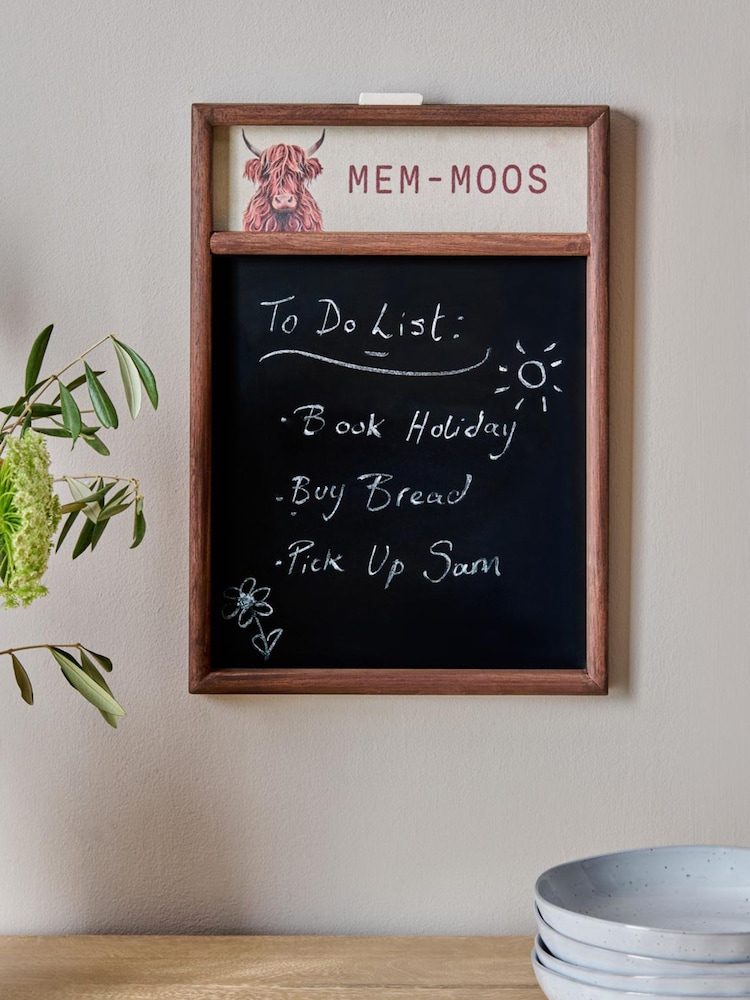 MEM-MOOS
To Do List:
· Book Holiday
· Buy Bread
· Pick Up Sam